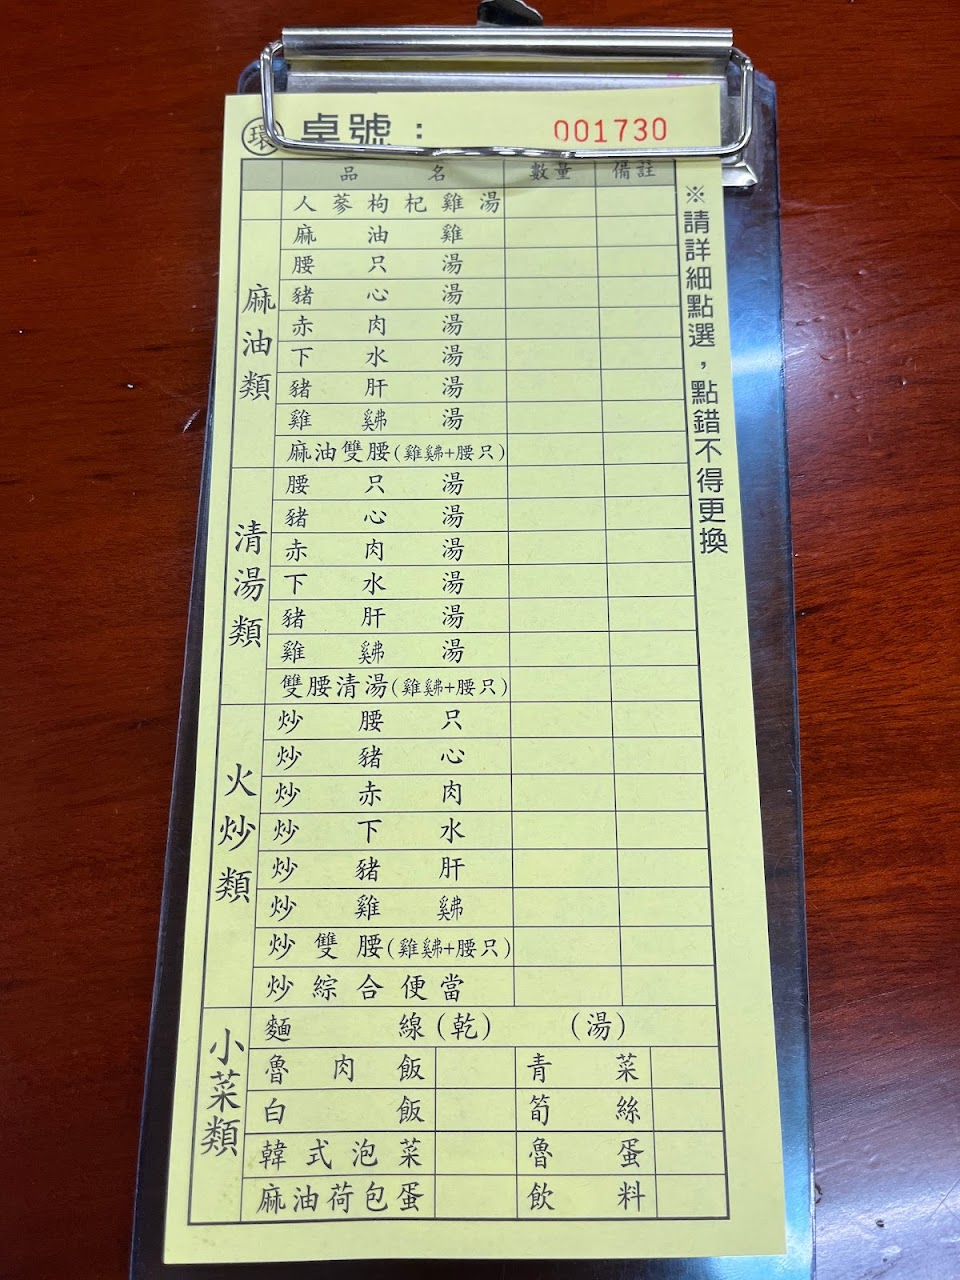 環 桌號： 001730
品名 數量 備註
人蔘枸杞雞湯
麻油類
麻油雞
腰只湯
豬心湯
赤肉湯
下水湯
豬肝湯
雞 湯
麻油雙腰(雞 +腰只)
清湯類
腰只湯
豬心湯
赤肉湯
下水湯
豬肝湯
雞 湯
雙腰清湯(雞 +腰只)
火炒類
炒腰只
炒豬心
炒赤肉
炒下水
炒豬肝
炒雞
炒雙腰(雞 +腰只)
炒綜合便當
小菜類
麵線(乾) (湯)
魯肉飯 青菜
白飯 筍絲
韓式泡菜 魯蛋
麻油荷包蛋 飲料
※請詳細點選，點錯不得更換